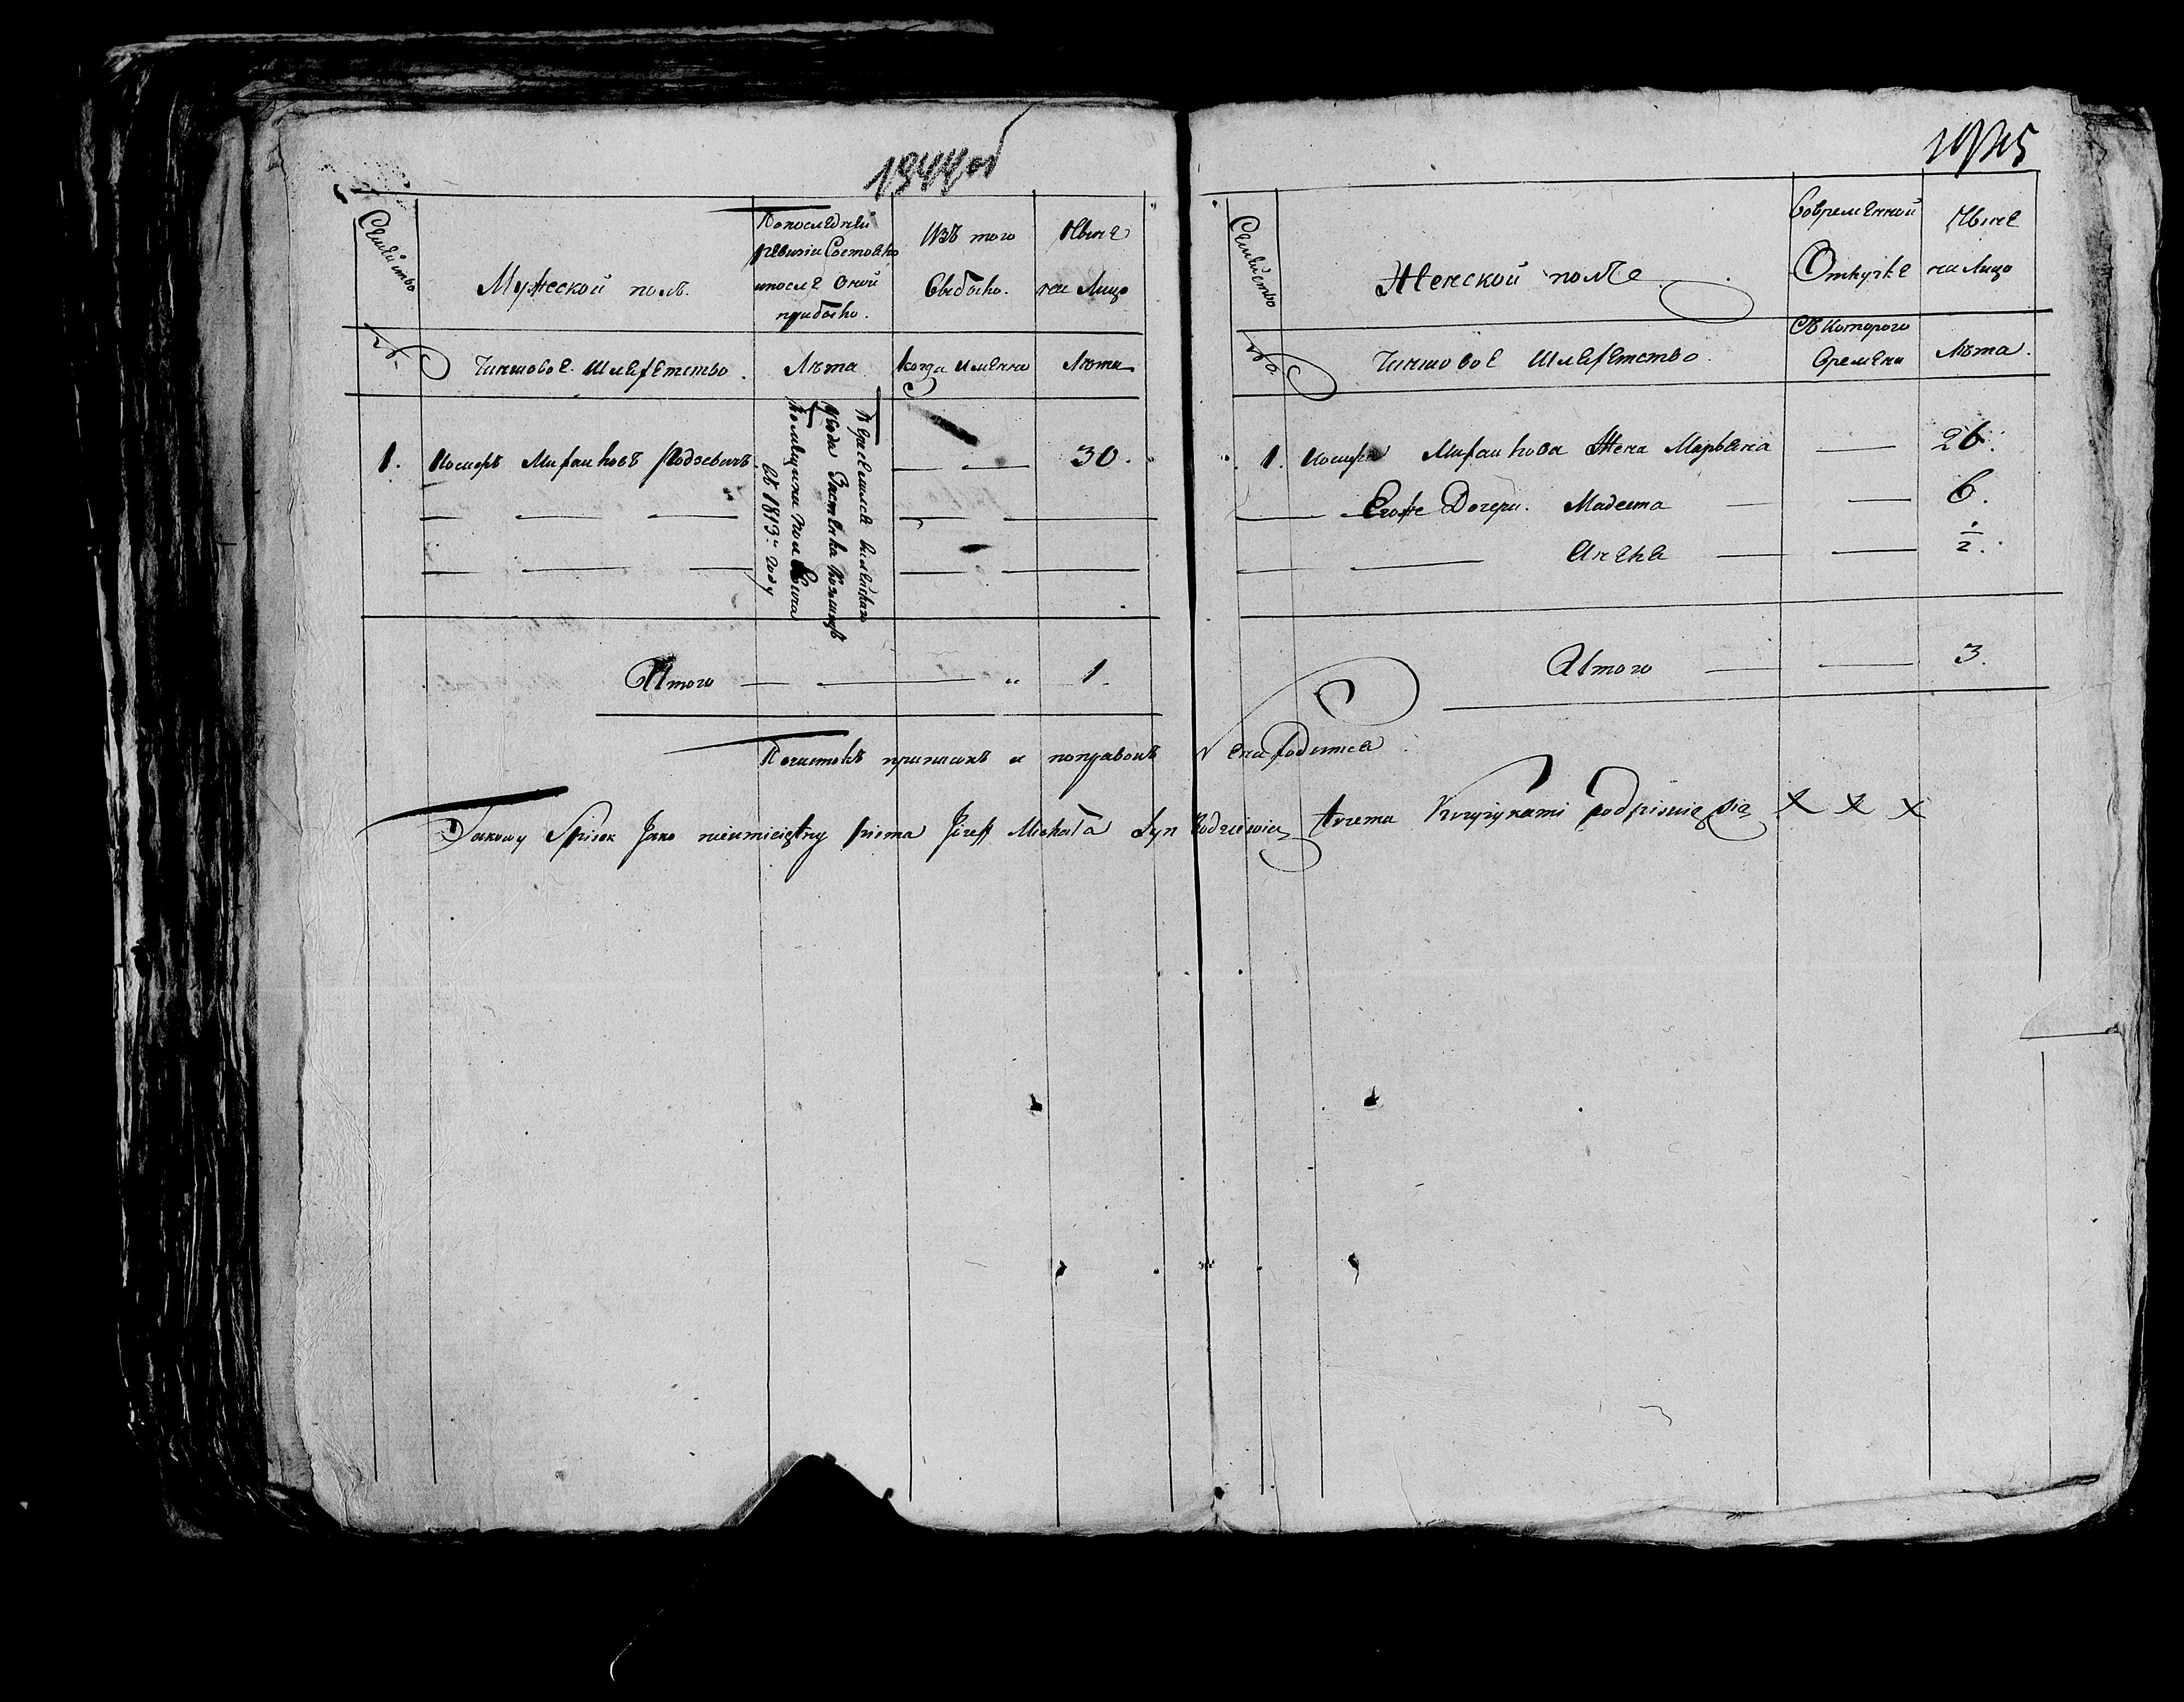 1944об
Семейство
Мужеской полъ.
По последней
ревизии Состояло
и после оной
прибыло.
Изъ того
Выбыло.
Ныне
на Лицо
№
Чиншовое Шляхетство.
Лета
когда именно
Лета
1. Иосифъ Михайловъ Родзевичъ
Переселился
уезда Застенка
Помещика
въ 1813м году
30.
Итого — — „ 1.
1945
Семейство
Женской полъ
Во временной
Отлучке
Ныне
на Лицо
№
Чиншовое Шляхетство.
Съ которого
времени
Лета.
1. Иосифа Михайлова Жена Марьяна — 26.
Егоже Дочери. — 6.
— ½.
Итого — — 3.
Почистокъ приписокъ и поправокъ ненаходится.
Takowy Spisek Jako nieumieiętny pisma Józeff Michała Syn Rodziewicz trzema Krzyżykami podpisuię się X X X